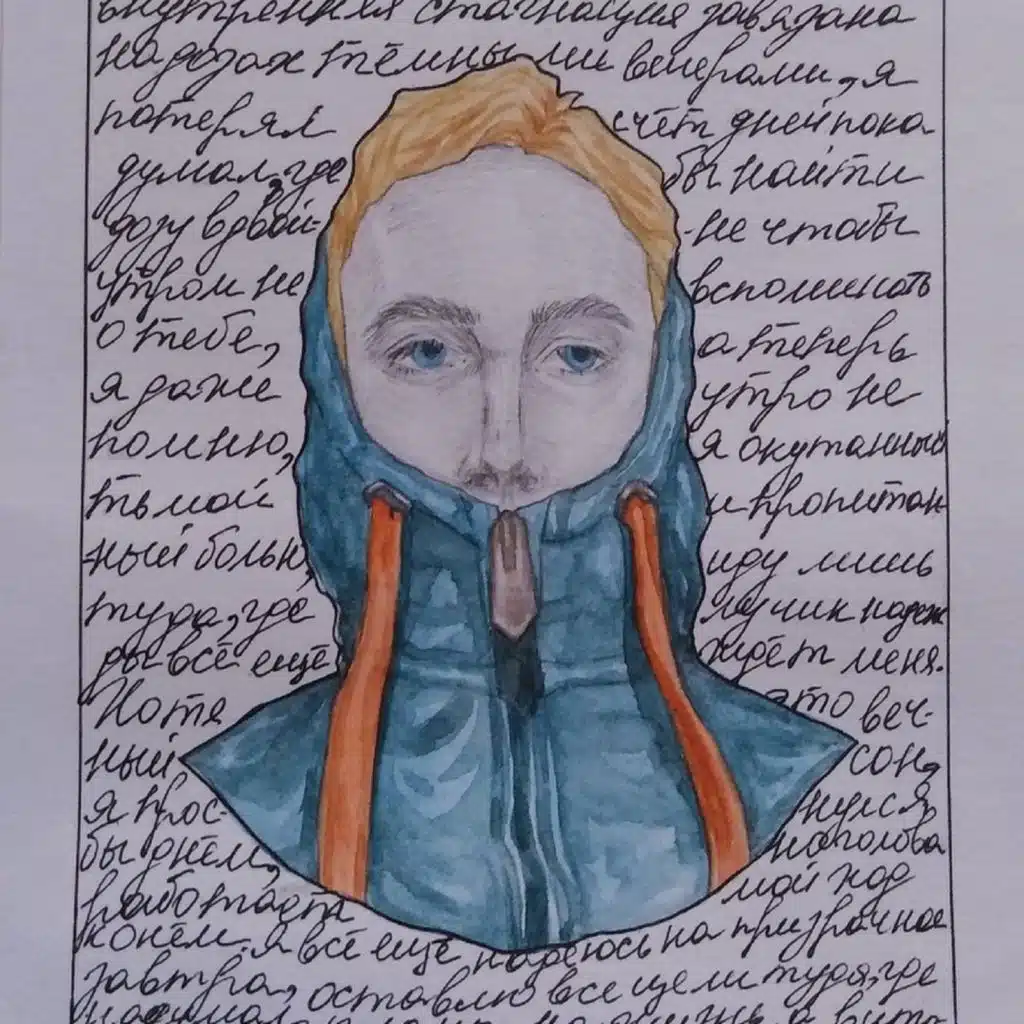 внутренняя стагнация завязана
на дозах тёмными вечерами, я
потерял счёт дней пока
думал, где бы найти
дозу вдвой- -не чтобы
утром не вспоминать
о тебе, а теперь
я даже утро не
помню, я окутанный
тьмой и пропитан-
-ный болью, иду лишь
туда, где лучик надеж
ды всё ещё ждёт меня.
Хотя это веч-
ный сон,
я прос- нулся
бы днём, но голова
работает мой ход
конём. я всё ещё надеюсь на призрачное
завтра, оставлю все цели туда, где